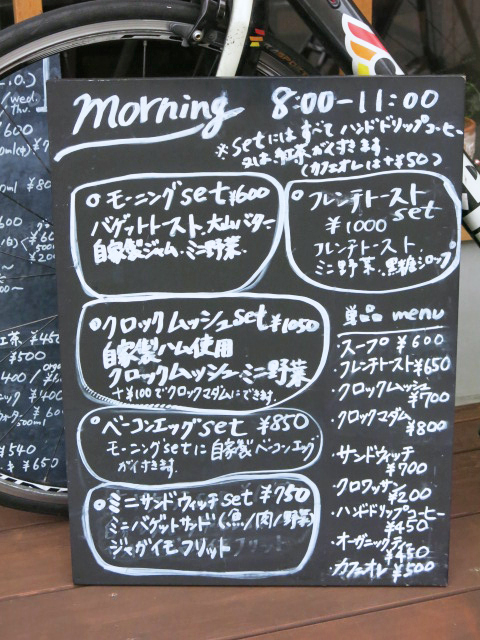 morning 8:00-11:00
※setにはすべてハンドドリップコーヒー
又は紅茶がつきます。
(カフェオレは+¥50)
○モーニングset ¥600
バゲットトースト.大山バター
自家製ジャム・ミニ野菜
○フレンチトースト
set
¥1000
フレンチトースト.
ミニ野菜.黒糖シロップ
○クロックムッシュset ¥1050
自家製ハム使用
クロックムッシュ・ミニ野菜
+¥100でクロックマダムにできます。
○ベーコンエッグset ¥850
モーニングsetに自家製ベーコンエッグ
がつきます。
○ミニサンドウィッチset ¥750
ミニバゲットサンド(魚/肉/野菜)
ジャガイモフリット
単品 menu
・スープ ¥600
・フレンチトースト ¥650
・クロックムッシュ
¥700
・クロックマダム
¥800
・サンドウィッチ
¥700
・クロワッサン
¥200
・ハンドドリップコーヒー
¥450
・オーガニックティー
¥450
・カフェオレ ¥500